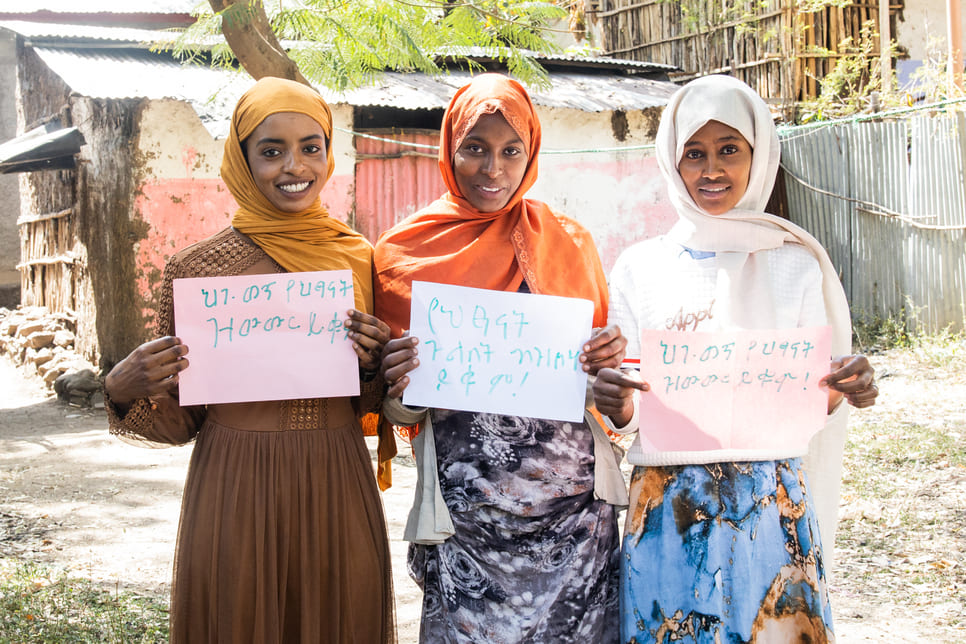 ህገ-ወጥ የህፃናት
ዝውውር ይቁ
የህፃናት
ጉልበት ብዝበዛ
ይቁም!
Appl
ህገ-ወጥ የህፃናት
ዝውውር ይቁም!